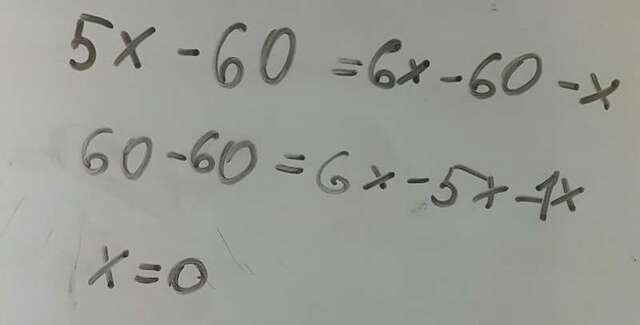 5x - 60 = 6x - 60 - x
60 - 60 = 6x - 5x - 1x
x = 0